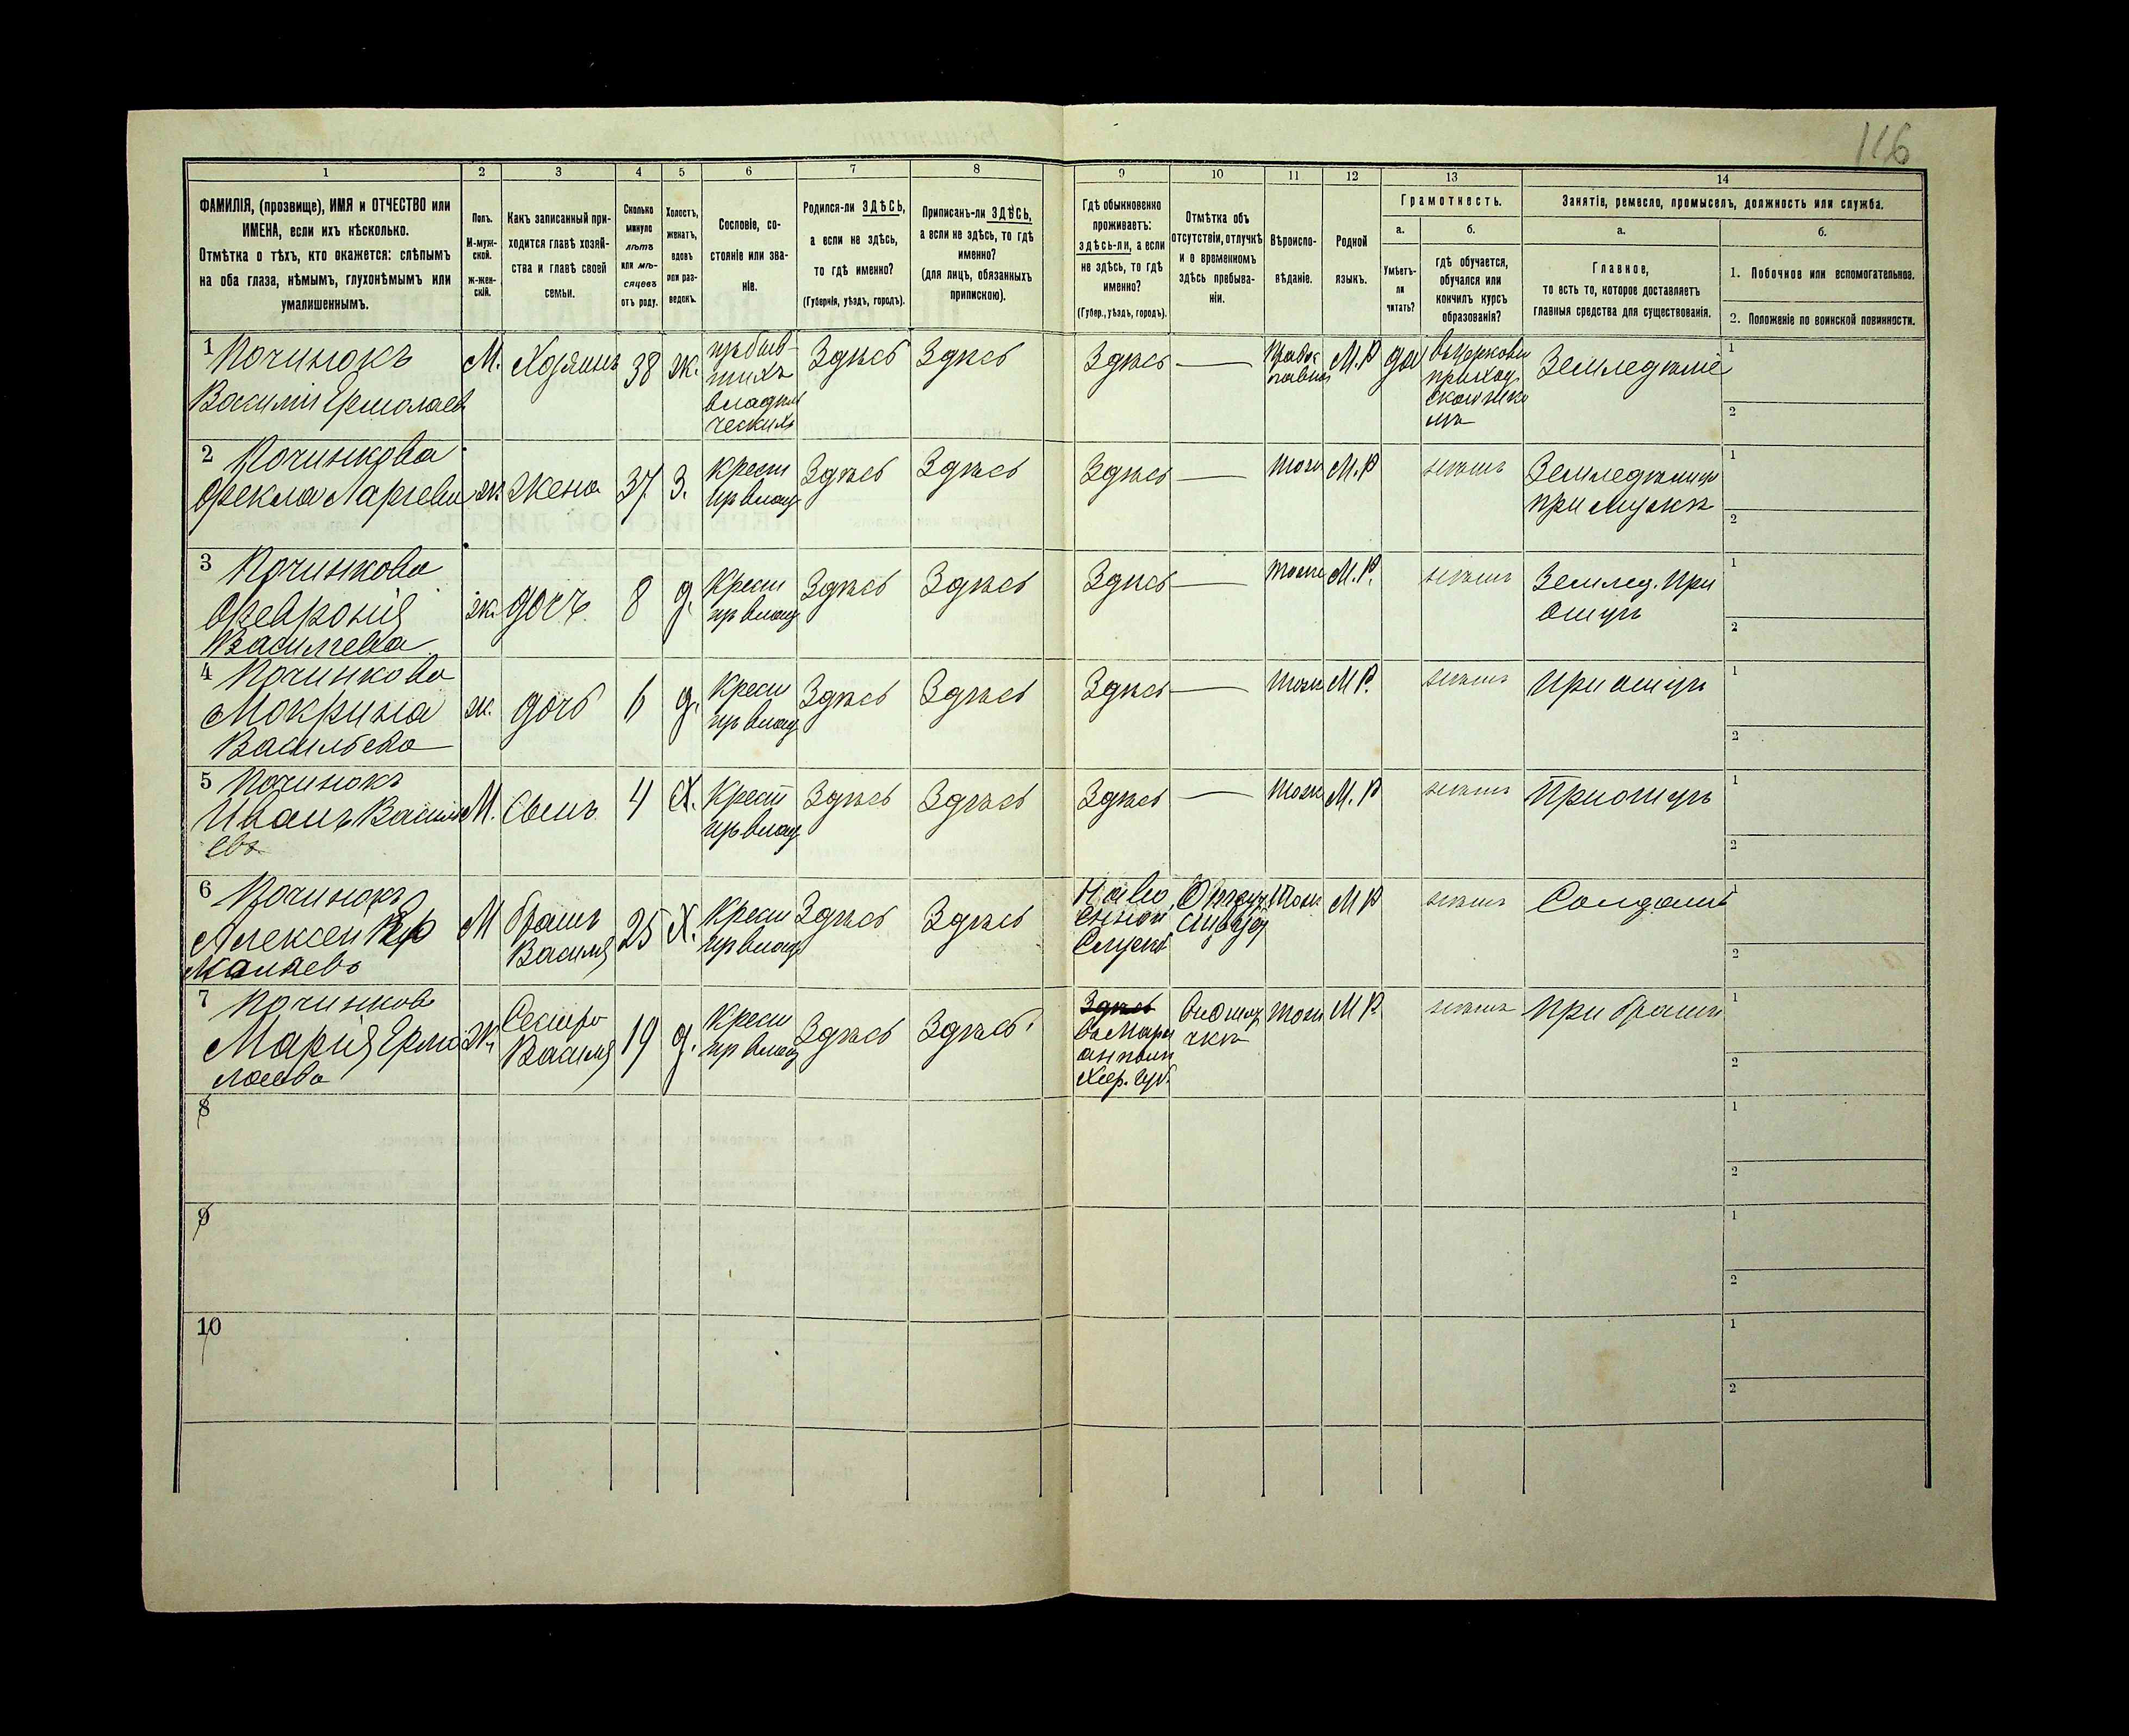 116
1 2 3 4 5 6 7 8 9 10 11 12 13 14
ФАМИЛІЯ, (прозвище), ИМЯ и ОТЧЕСТВО или
ИМЕНА, если ихъ нѣсколько.
Отмѣтка о тѣхъ, кто окажется: слѣпымъ
на оба глаза, нѣмымъ, глухонѣмымъ или
умалишеннымъ.
Полъ.
М-муж-
ской.
ж-жен-
скій.
Какъ записанный при-
ходится главѣ хозяй-
ства и главѣ своей
семьи.
Сколько
минуло
лѣтъ
или мѣ-
сяцевъ
отъ роду.
Холостъ,
женатъ,
вдовъ
или раз-
ведокъ.
Сословіе, со-
стояніе или зва-
ніе.
Родился-ли ЗДѢСЬ,
а если не здѣсь,
то гдѣ именно?
(Губернія, уѣздъ, городъ).
Приписанъ-ли ЗДѢСЬ,
а если не здѣсь, то гдѣ
именно?
(для лицъ, обязанныхъ
припискою).
Гдѣ обыкновенно
проживаетъ:
здѣсь-ли, а если
не здѣсь, то гдѣ
именно?
(Губер., уѣздъ, городъ).
Отмѣтка объ
отсутствіи, отлучкѣ
и о временномъ
здѣсь пребыва-
ніи.
Вѣроиспо-
вѣданіе.
Родной
языкъ.
Грамотность.
а.
Умѣетъ-
ли
читать?
б.
гдѣ обучается,
обучался или
кончилъ курсъ
образованія?
Занятіе, ремесло, промыселъ, должность или служба.
а.
Главное,
то есть то, которое доставляетъ
главныя средства для существованія.
б.
1. Побочное или вспомогательное.
2. Положеніе по воинской повинности.
1 Починокъ
Василій Ермолаев
М. Хозяинъ 38 ж.
Здѣсь Здѣсь Здѣсь — М.Р да
Земледѣліе
1
2
2 Починкова
Фекла
ж. жена 37 З.
Крест
Здѣсь Здѣсь Здѣсь — тоже М.Р
при мужѣ
1
2
3 Починкова
Февронія
Василева
ж. дочь 8 д.
Крест
Здѣсь Здѣсь Здѣсь — тоже М.Р.
Землед. при
отцѣ
1
2
4 Починкова
Мокрина
Васильева
ж. дочь 6 д.
Крест
Здѣсь Здѣсь Здѣсь — тоже М Р.
при отцѣ
1
2
5 Починокъ
Иванъ Василь
евъ
М. Сынъ 4 Х.
Крест
Здѣсь Здѣсь Здѣсь — тоже М.Р
при отцѣ
1
2
6 Починокъ
Алексей Ер
молаевъ
М братъ
Василія
25 Х.
Крест
Здѣсь Здѣсь
тоже М Р
Солдатъ
1
2
7 Починкова
Марія Ермо
лаева
ж. Сестра
Василія
19 д.
Крест
Здѣсь Здѣсь
Здѣсь
Хер. губ.
тоже М Р
при братѣ
1
2
8
1
2
9
1
2
10
1
2